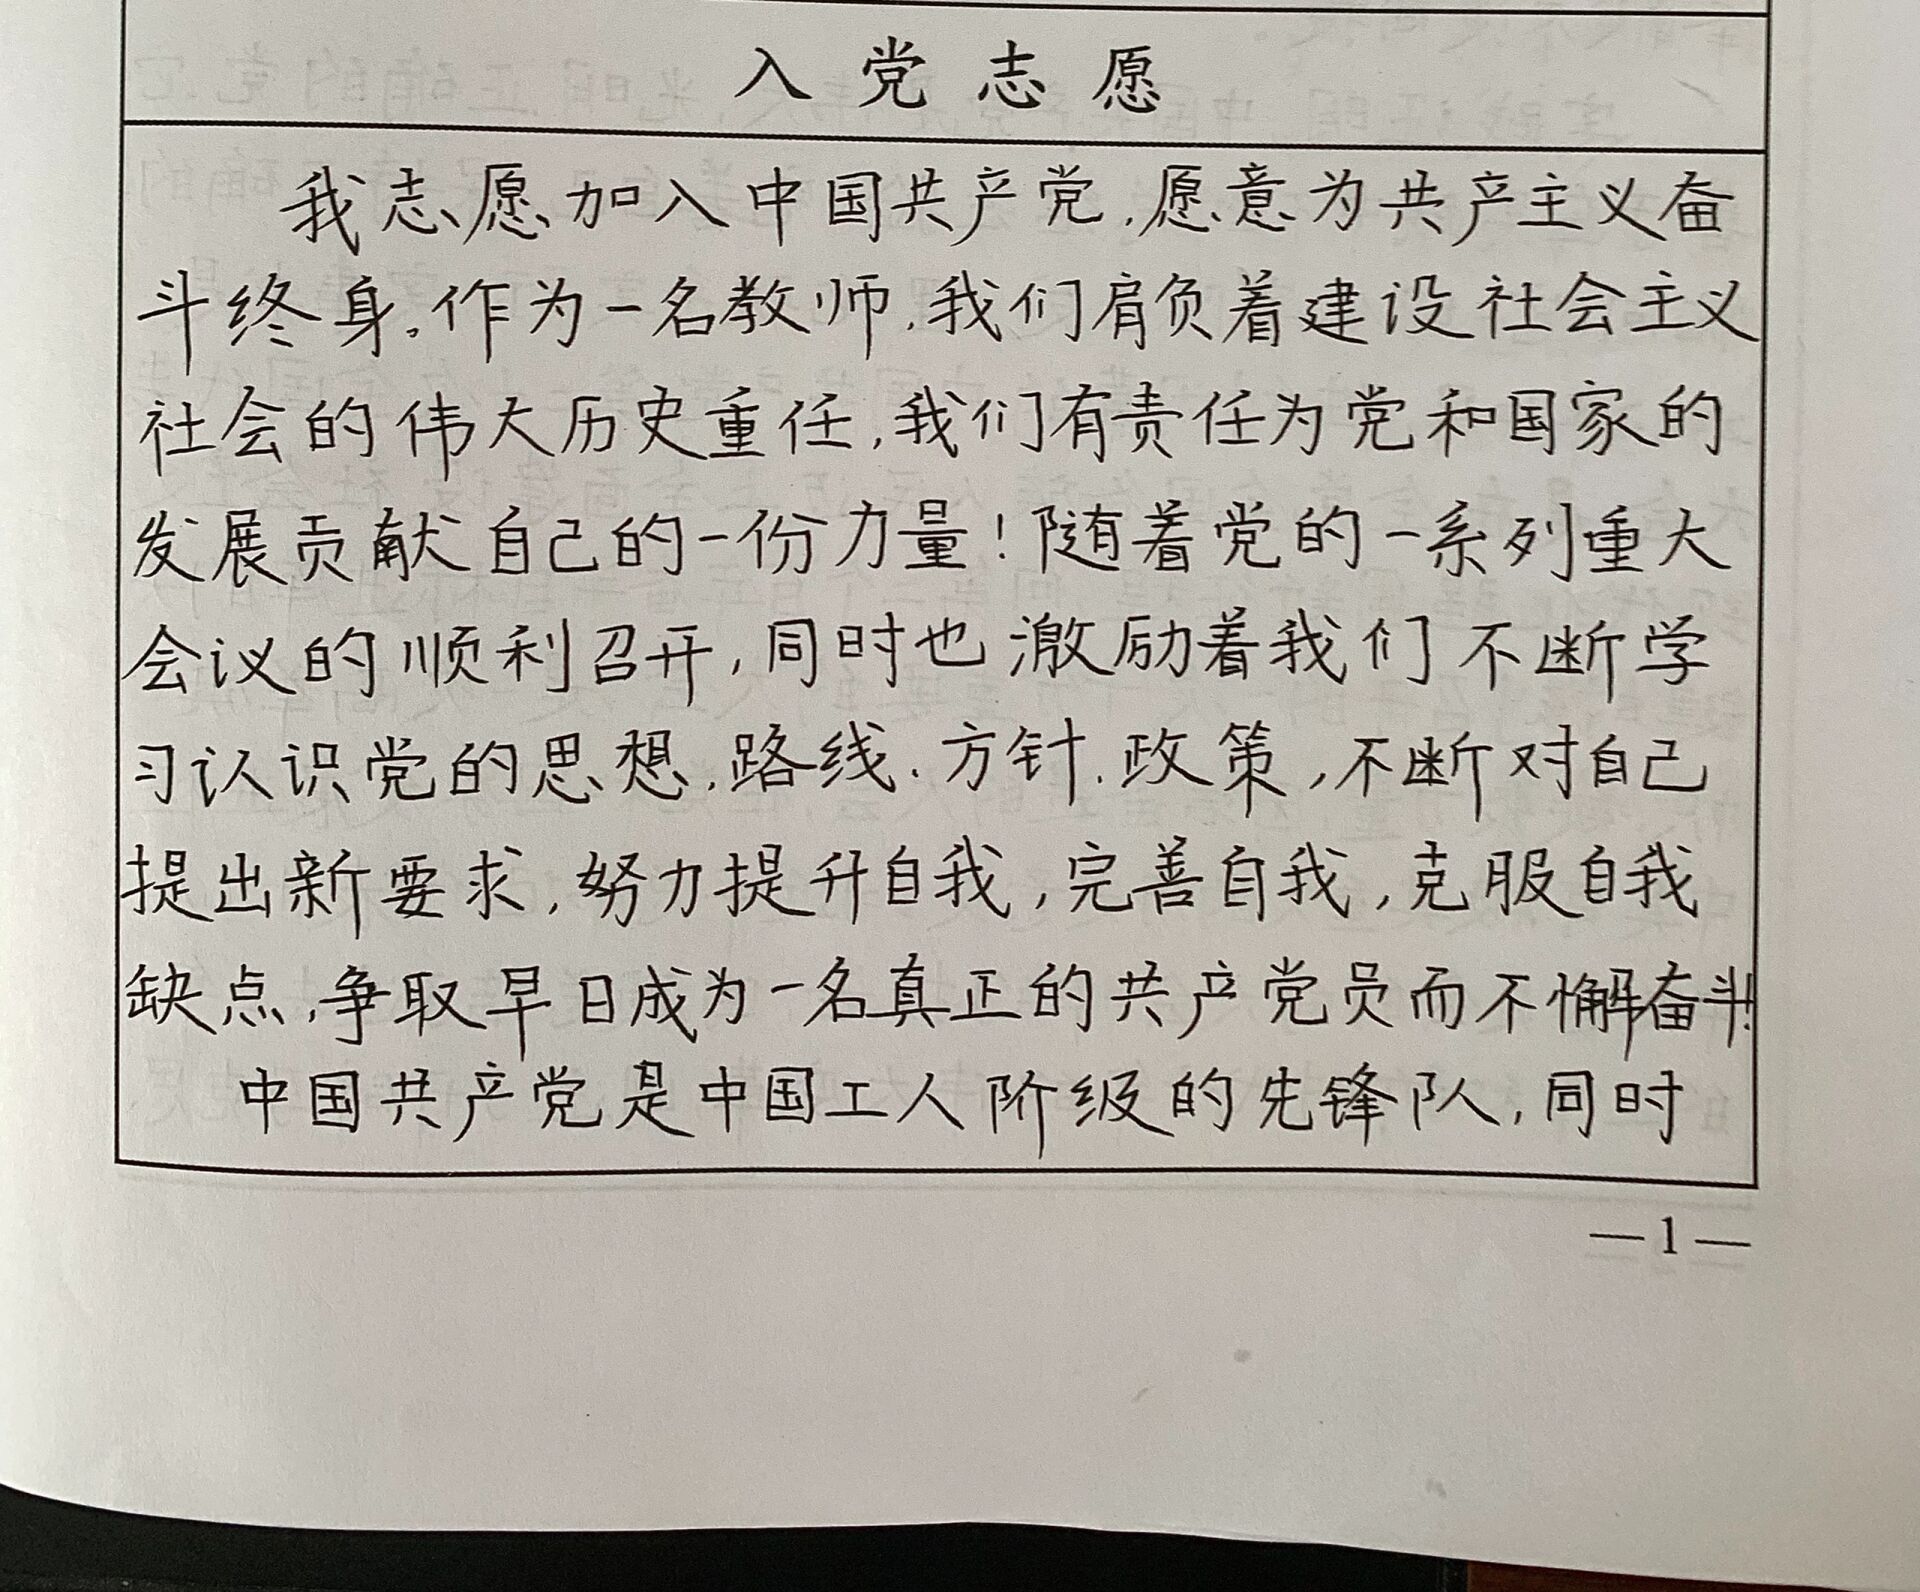 入党志愿
我志愿加入中国共产党,愿意为共产主义奋
斗终身。作为一名教师,我们肩负着建设社会主义
社会的伟大历史重任,我们有责任为党和国家的
发展贡献自己的一份力量!随着党的一系列重大
会议的顺利召开,同时也激励着我们不断学
习认识党的思想、路线、方针、政策,不断对自己
提出新要求,努力提升自我,完善自我,克服自我
缺点,争取早日成为一名真正的共产党员而不懈奋斗!
中国共产党是中国工人阶级的先锋队,同时
—1—